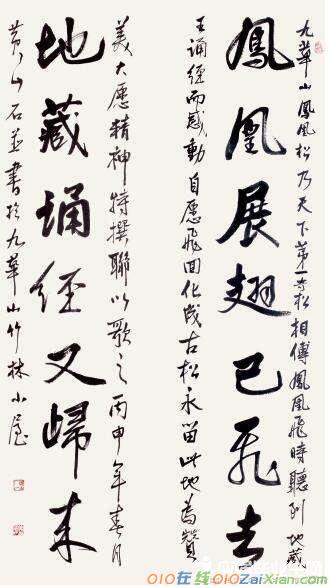 九華山鳳凰松乃天下第一奇松相傳鳳凰飛時聽到地藏
鳳凰展翅已飛去
王誦經而感動自愿飛回化成古松永留此地為贊
美大愿精神特撰聯以歌之丙申年春月
地藏誦經又歸來
黄山石並書於九華山竹林小屋
010在线 OlOZaiXian.Com